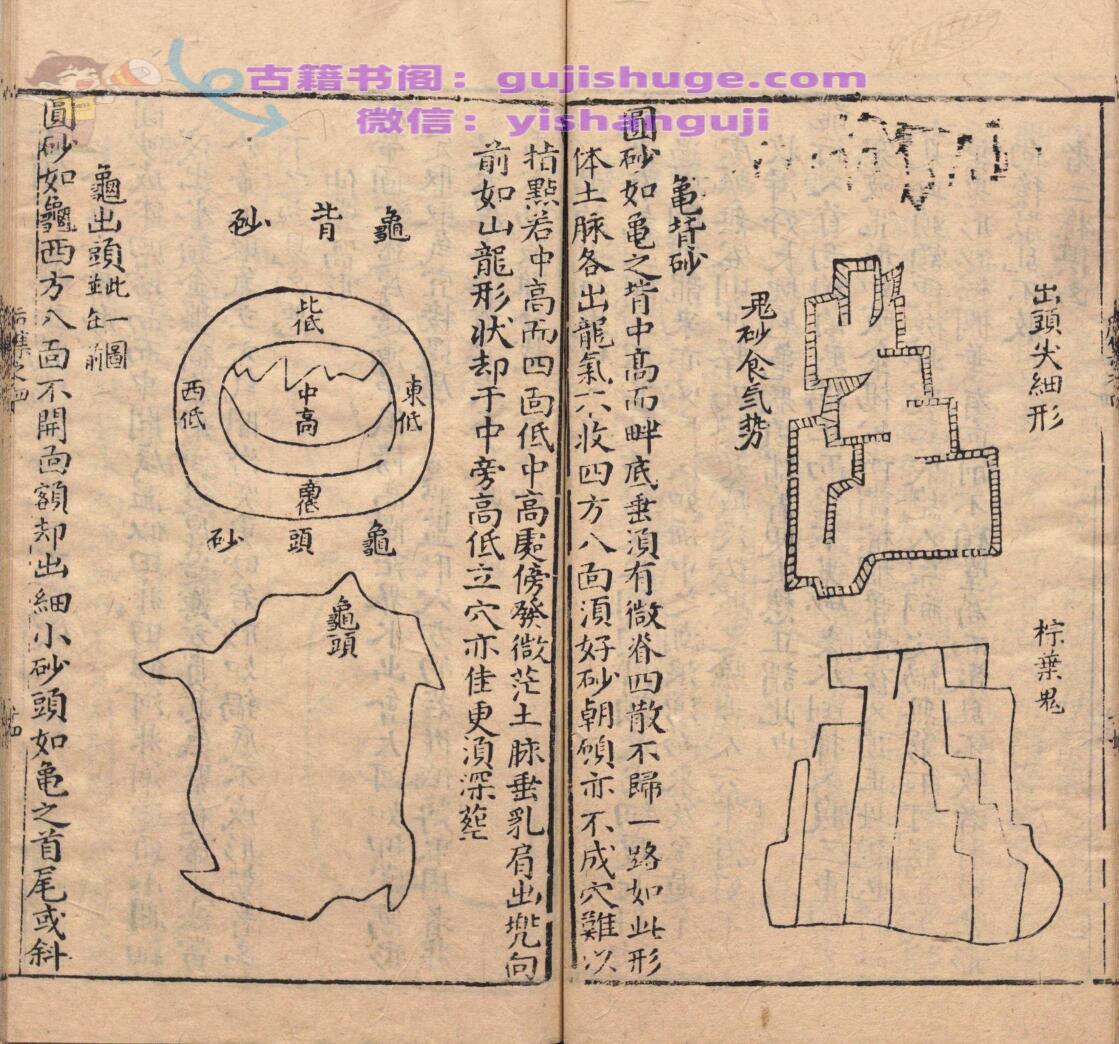 古籍书阁：gujishuge.com
微信：yishanguji
出頭尖細形
棕葉鬼
鬼砂食气势
龟背砂
圓砂如龟之背中高而畔底垂湏有微脊四散不歸一路如此形
体土脉各出龍氣不收四方八面湏好砂朝顧亦不成穴難以
指點若中高而四面低中高處傍發微茫土脉垂乳肩出兠向
前如山龍形状却于中旁高低立穴亦佳更湏深葬
龜背砂
北低
東低
中高
西低
南低
龜頭砂
龜頭
龜出頭此一圖並在前
圓砂如龜四方八面不開面額却出細小砂頭如龟之首尾或斜